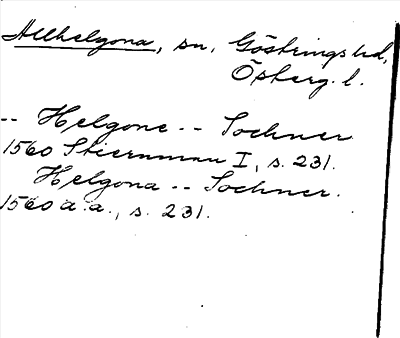 Allhelgona, sn, Göstrings hd,
Österg. l.
-- Helgone -- Sochner
1560 Stiernman I, s. 231.
Helgona -- Sochner.
1560 a.a., s. 231.